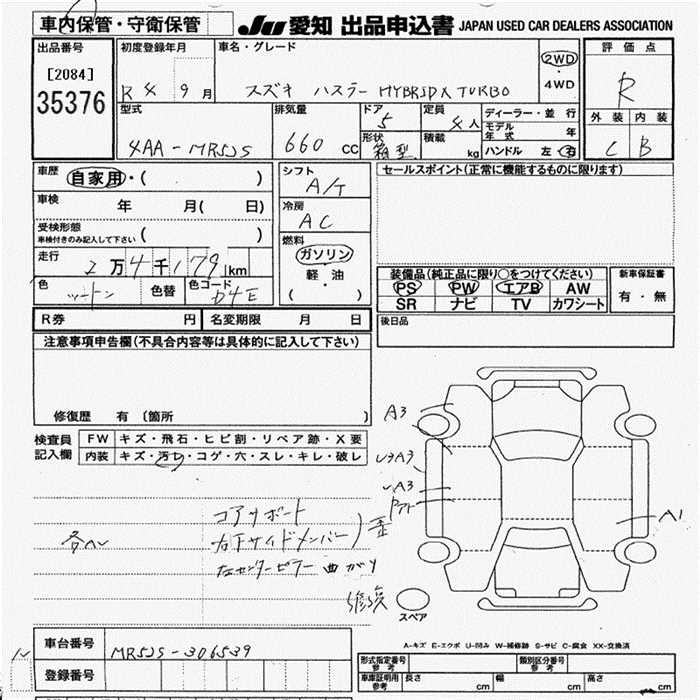 車内保管・守衛保管
JU 愛知 出品申込書 JAPAN USED CAR DEALERS ASSOCIATION
出品番号 初度登録年月 車名・グレード 評価点
[2084] R 4 9月 スズキ ハスラー HYBRID X TURBO 2WD・4WD R
35376
型式 排気量 ドア 定員 ディーラー・並行 外装 内装
4AA-MR52S 660cc 5 4人 モデル年式 年 C B
形状 箱型 積載 kg ハンドル 左・右
車歴 自家用・( ) シフト A/T セールスポイント(正常に機能するものに限ります)
車検 年 月( 日) 冷房 AC
受検形態 ( )
車検付きのみ記入して下さい
燃料 ガソリン
軽・油
( )
走行 2万4千179km
色 ツートン 色替 色コード D4E
装備品(純正品に限り○をつけてください) 新車保証書
PS PW エアB AW 有・無
SR ナビ TV カワシート
R券 円 名変期限 月 日 後日品
注意事項申告欄(不具合内容等は具体的に記入して下さい)
修復歴 有 〔箇所 〕
検査員記入欄 FW キズ・飛石・ヒビ割・リペア跡・X要
内装 キズ・汚レ・コゲ・穴・スレ・キレ・破レ
A3
A3
A3
A1
コアサポート
右下サイドメンバー
左センターピラー 曲がり
修復
スペア
A-キズ E-エクボ U-凹み W-補修跡 S-サビ C-腐食 XX-交換済
車台番号 MR52S-306539
登録番号
形式指定番号参考 類別区分番号参考
車庫証明用参考 長さ cm 幅 cm 高さ cm